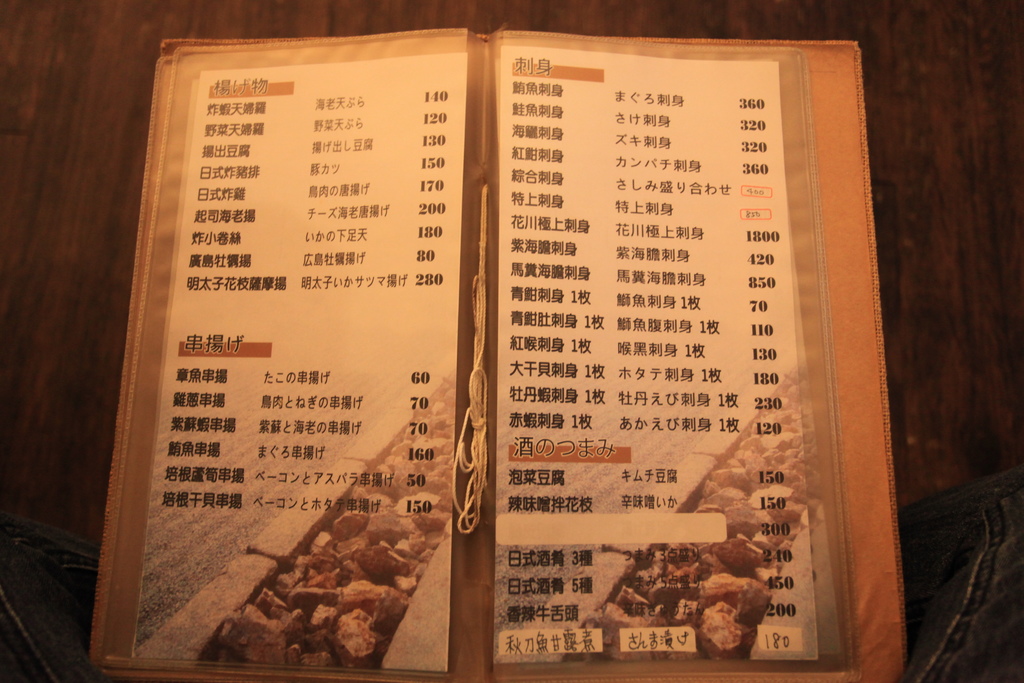 揚げ物
炸蝦天婦羅 海老天ぷら 140
野菜天婦羅 野菜天ぷら 120
揚出豆腐 揚げ出し豆腐 130
日式炸豬排 豚カツ 150
日式炸雞 鳥肉の唐揚げ 170
起司海老揚 チーズ海老唐揚げ 200
炸小卷絲 いかの下足天 180
廣島牡蠣揚 広島牡蠣揚げ 80
明太子花枝薩摩揚 明太子いかサツマ揚げ 280
串揚げ
章魚串揚 たこの串揚げ 60
雞蔥串揚 鳥肉とねぎの串揚げ 70
紫蘇蝦串揚 紫蘇と海老の串揚げ 70
鮪魚串揚 まぐろ串揚げ 160
培根蘆筍串揚 ベーコンとアスパラ串揚げ 50
培根干貝串揚 ベーコンとホタテ串揚げ 150
刺身
鮪魚刺身 まぐろ刺身 360
鮭魚刺身 さけ刺身 320
海鱺刺身 ズキ刺身 320
紅魽刺身 カンパチ刺身 360
綜合刺身 さしみ盛り合わせ 400
特上刺身 特上刺身 820
花川極上刺身 花川極上刺身 1800
紫海膽刺身 紫海膽刺身 420
馬糞海膽刺身 馬糞海膽刺身 850
青魽刺身 1枚 鰤魚刺身 1枚 70
青魽肚刺身 1枚 鰤魚腹刺身 1枚 110
紅喉刺身 1枚 喉黑刺身 1枚 130
大干貝刺身 1枚 ホタテ刺身 1枚 180
牡丹蝦刺身 1枚 牡丹えび刺身 1枚 230
赤蝦刺身 1枚 あかえび刺身 1枚 120
酒のつまみ
泡菜豆腐 キムチ豆腐 150
辣味噌拌花枝 辛味噌いか 150
300
日式酒肴 3種 つまみ 3点盛り 240
日式酒肴 5種 つまみ 5点盛り 450
香辣牛舌頭 200
秋刀魚甘露煮 さんま漬け 180